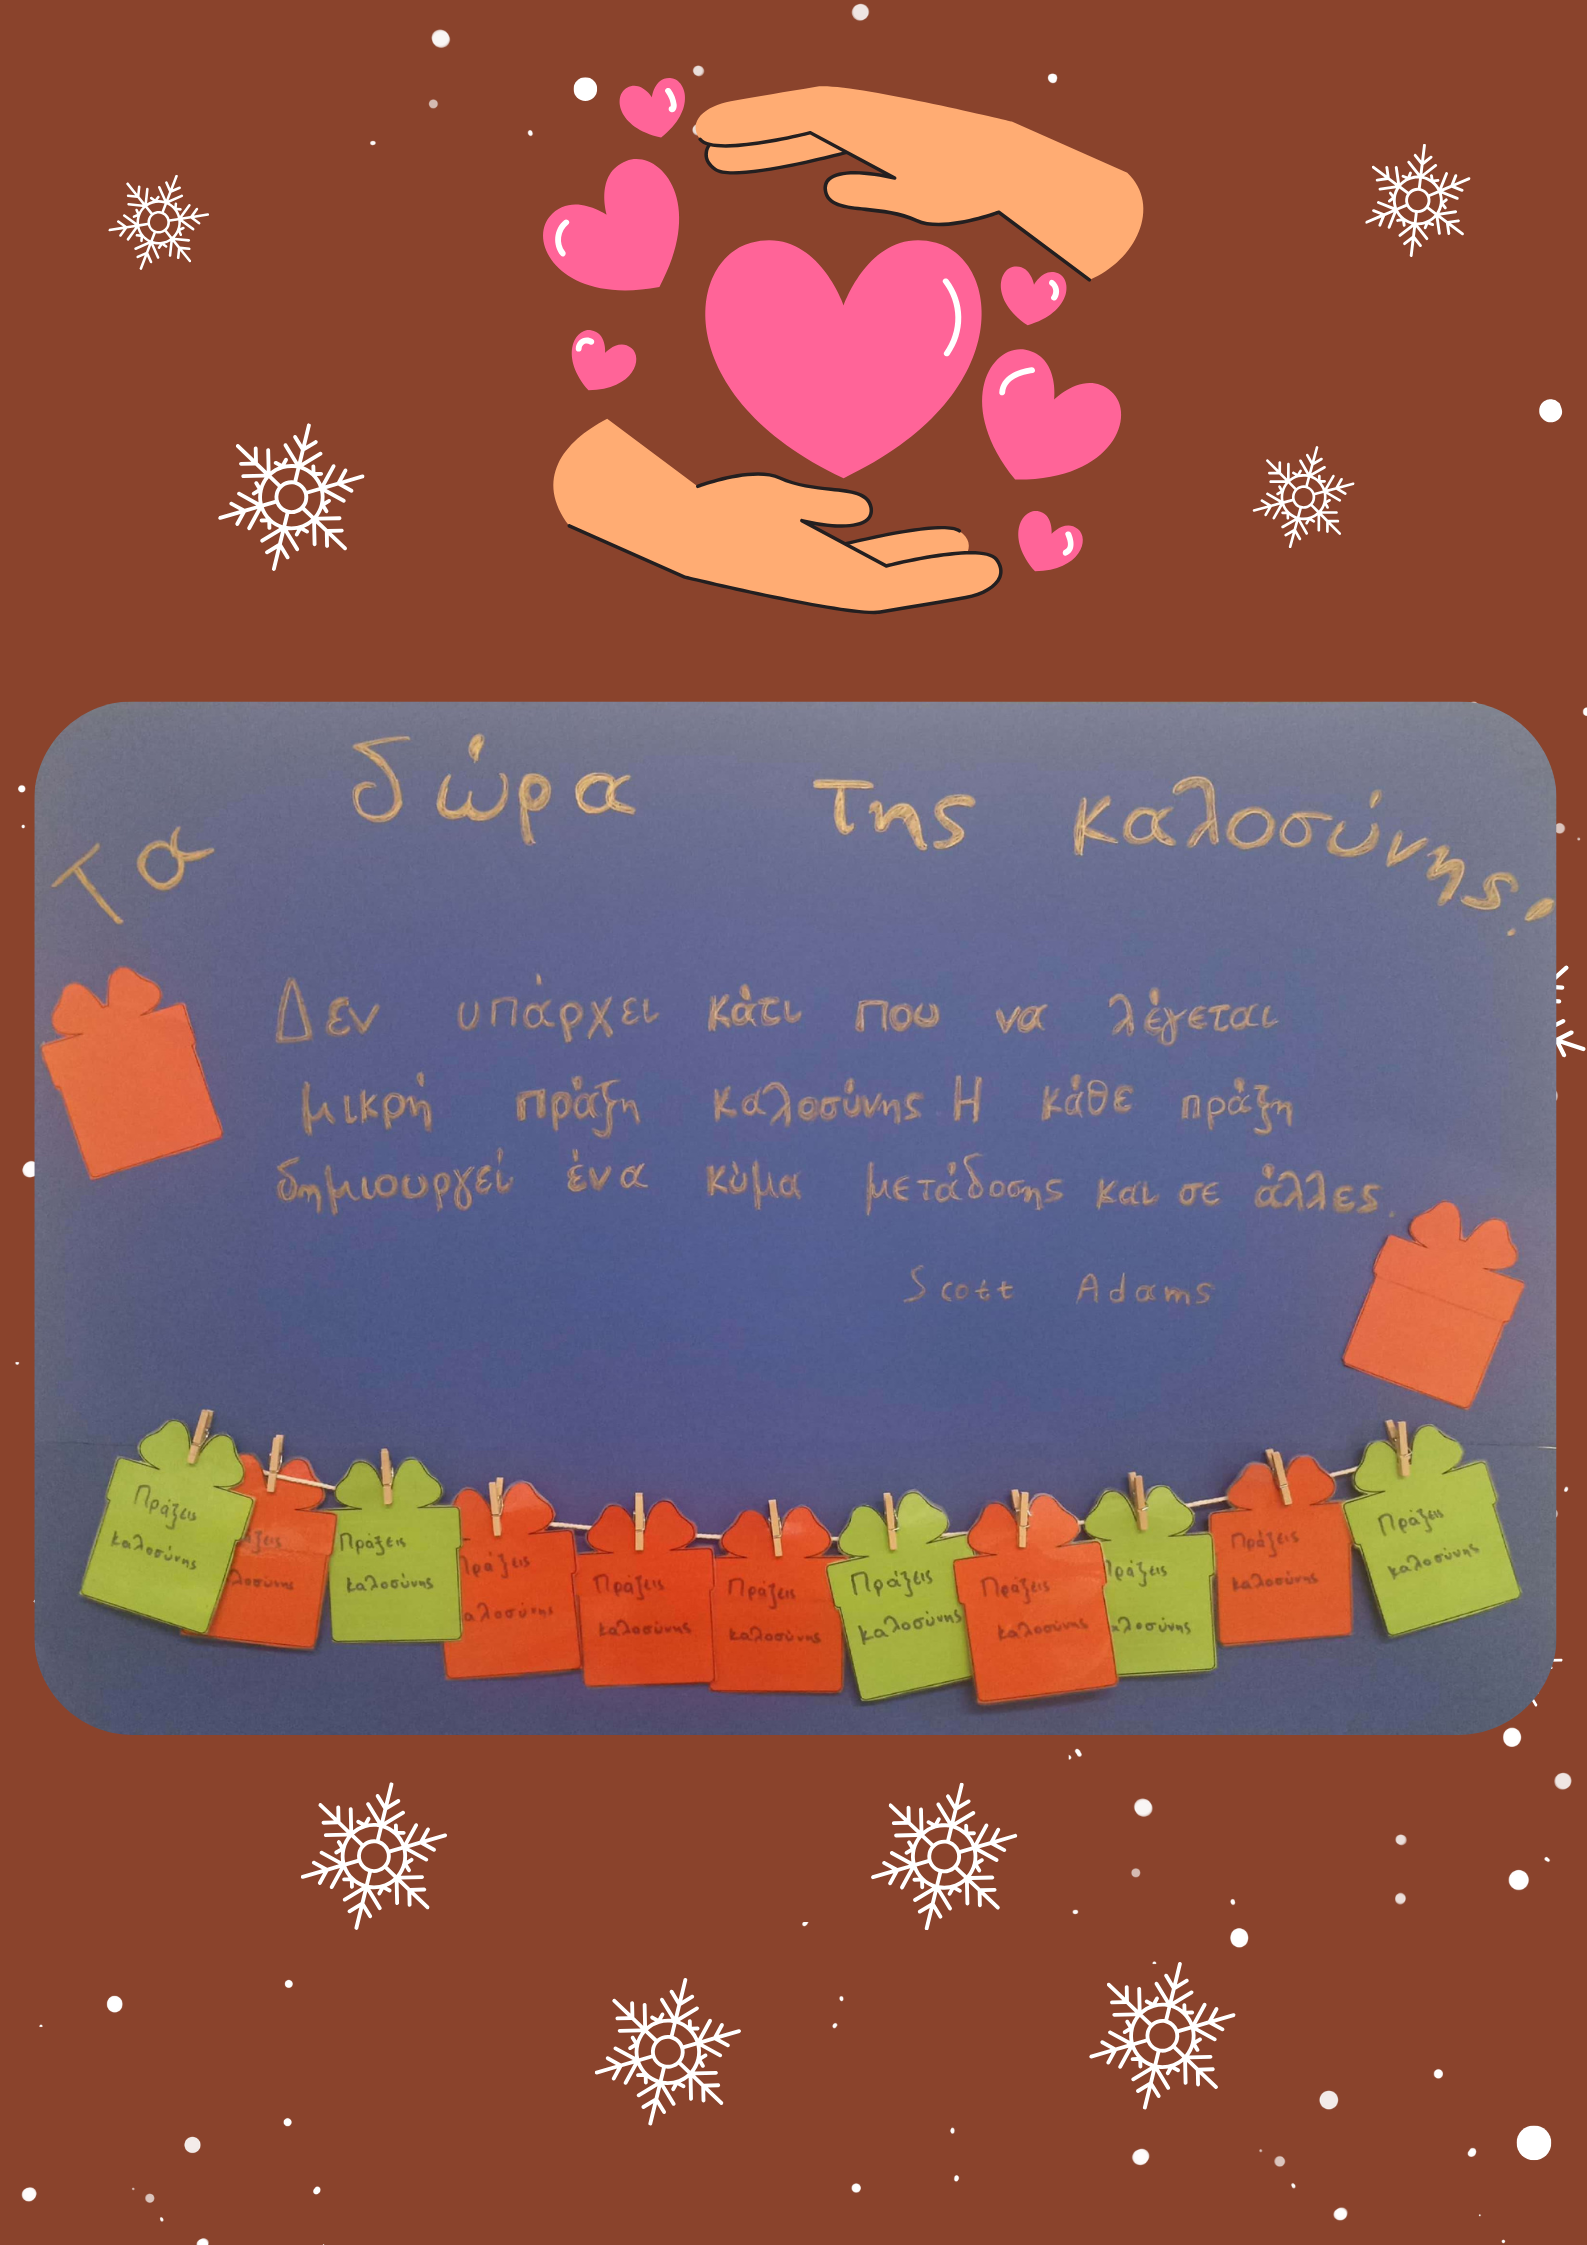 Τα δώρα της καλοσύνης!
Δεν υπάρχει κάτι που να λέγεται
μικρή πράξη καλοσύνης. Η κάθε πράξη
δημιουργεί ένα κύμα μετάδοσης και σε άλλες.
Scott Adams
Πράξεις
καλοσύνης
Πράξεις
καλοσύνης
Πράξεις
καλοσύνης
Πράξεις
καλοσύνης
Πράξεις
καλοσύνης
Πράξεις
καλοσύνης
Πράξεις
καλοσύνης
Πράξεις
καλοσύνης